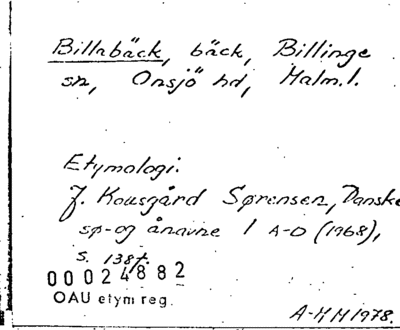 Billabäck, bäck, Billinge
sn, Onsjö hd, Malm.l.
Etymologi:
J. Kousgård Sørensen, Danske
sø- og ånavne 1 A-D (1968),
s. 138f.
00024882
OAU etym reg.
A-M H 1978.